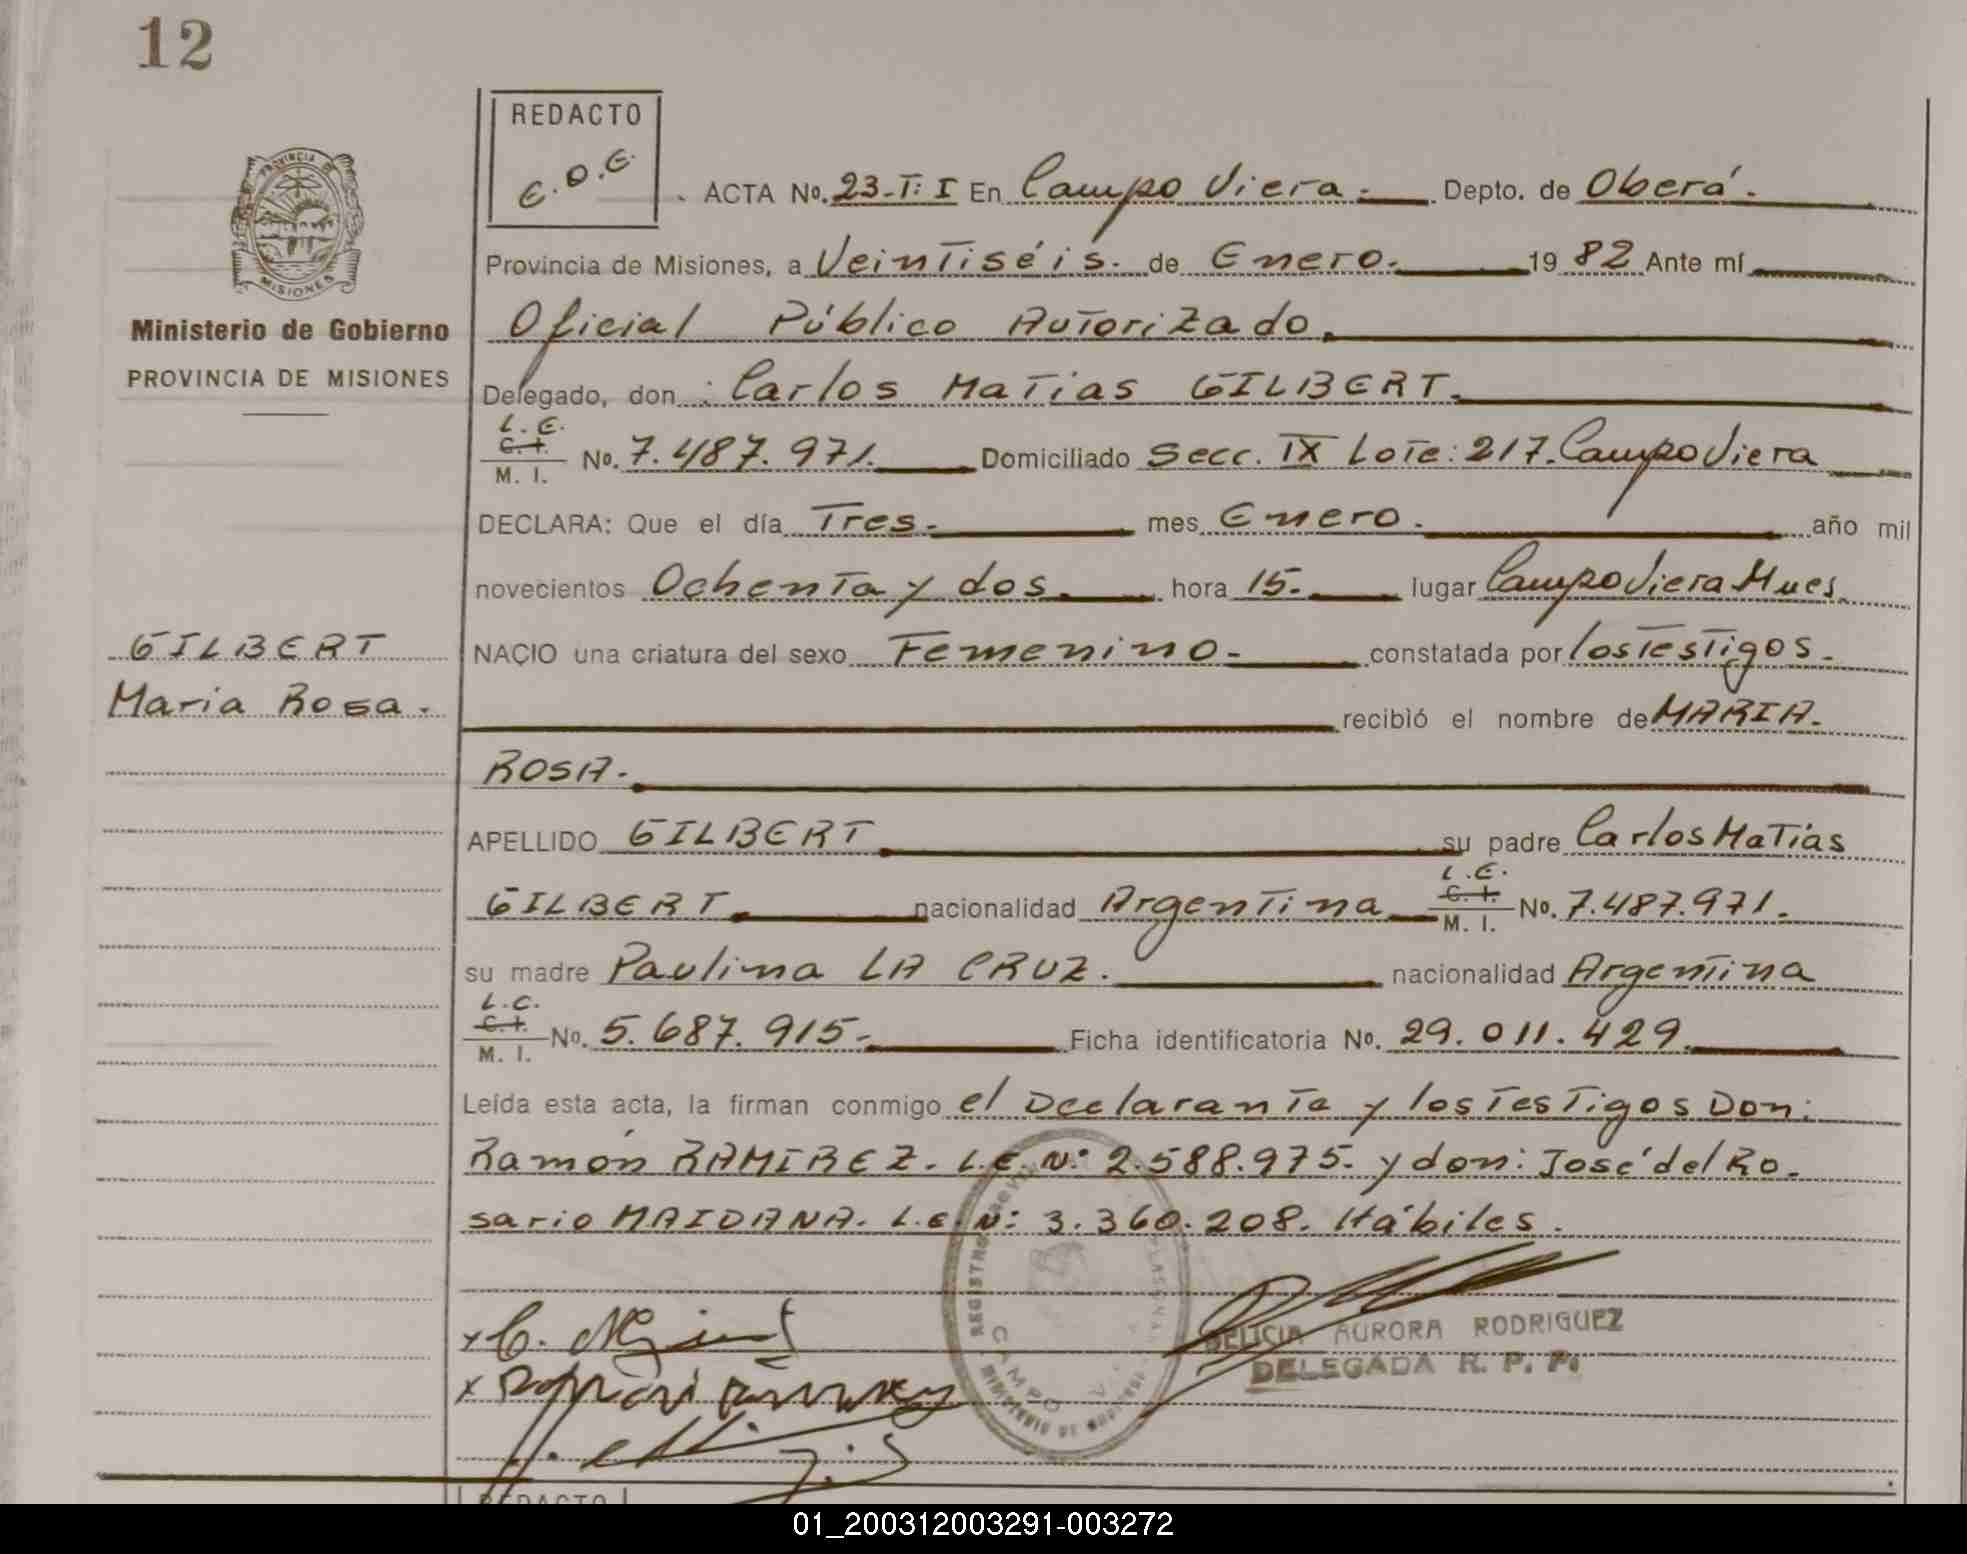 12
REDACTO
E.O.E.
ACTA No. 23-T: I En Campo Viera. Depto. de Oberá.
PROVINCIA DE
MISIONES
Provincia de Misiones, a Veintiséis. de Enero. 1982 Ante mí
Ministerio de Gobierno
PROVINCIA DE MISIONES
Oficial Público Autorizado.
Delegado, don: Carlos Matias GILBERT.
L.E.
C.I.
M. I. No. 7.487.971. Domiciliado Secc. IX Lote: 217. Campo Viera
DECLARA: Que el día Tres. mes Enero. año mil
novecientos Ochenta y dos. hora 15. lugar Campo Viera Mnes.
GILBERT
Maria Rosa.
NACIO una criatura del sexo Femenino. constatada por los Testigos.
recibió el nombre de MARIA.
ROSA.
APELLIDO GILBERT su padre Carlos Matías
L.E.
C.I.
M. I.
GILBERT nacionalidad Argentina No. 7.487.971.
su madre Paulina LA CRUZ. nacionalidad Argentina
L.C.
C.I.
M. I. No. 5.687.915. Ficha identificatoria No. 29.011.429.
Leída esta acta, la firman conmigo el Declarante y los Testigos Don:
Ramón RAMIREZ. L.E. N: 2.588.975. y don: José del Ro.
sario MAIDANA. L.E. N: 3.360.208. Hábiles.
REGISTRO
CAMPO V
MINISTERIO DE
DELICIA AURORA RODRIGUEZ
DELEGADA R. P. P.
REDACTO
01_200312003291-003272